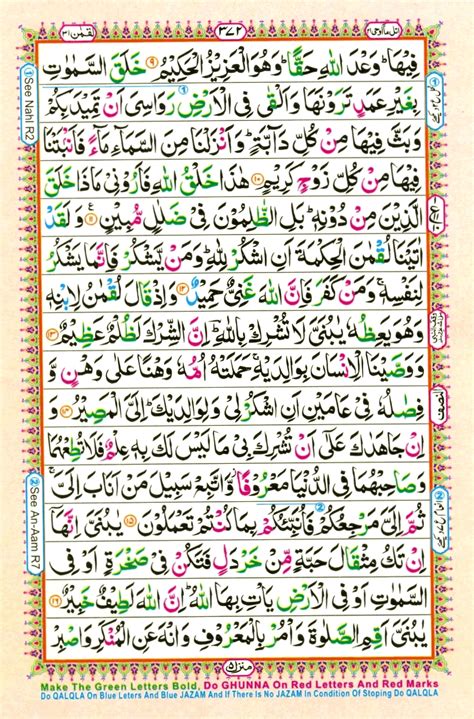 اتل ما اوحی ۲۱
۳۷۲
لقمٰن ۳۱
فِيْهَا ؕ وَعْدَ اللّٰهِ حَقًّا ؕ وَهُوَ الْعَزِيْزُ الْحَكِيْمُ ۹ خَلَقَ السَّمٰوٰتِ
بِغَيْرِ عَمَدٍ تَرَوْنَهَا وَاَلْقٰى فِى الْاَرْضِ رَوَاسِىَ اَنْ تَمِيْدَ بِكُمْ
وَبَثَّ فِيْهَا مِنْ كُلِّ دَآبَّةٍ ؕ وَاَنْزَلْنَا مِنَ السَّمَآءِ مَآءً فَاَنْۢبَتْنَا
فِيْهَا مِنْ كُلِّ زَوْجٍ كَرِيْمٍ ۱۰ هٰذَا خَلْقُ اللّٰهِ فَاَرُوْنِىْ مَاذَا خَلَقَ
الَّذِيْنَ مِنْ دُوْنِهٖ ؕ بَلِ الظّٰلِمُوْنَ فِىْ ضَلٰلٍ مُّبِيْنٍ ۱۱ وَلَقَدْ
اٰتَيْنَا لُقْمٰنَ الْحِكْمَةَ اَنِ اشْكُرْ لِلّٰهِ ؕ وَمَنْ يَّشْكُرْ فَاِنَّمَا يَشْكُرُ
لِنَفْسِهٖ ۚ وَمَنْ كَفَرَ فَاِنَّ اللّٰهَ غَنِىٌّ حَمِيْدٌ ۱۲ وَاِذْ قَالَ لُقْمٰنُ لِابْنِهٖ
وَهُوَ يَعِظُهٗ يٰبُنَىَّ لَا تُشْرِكْ بِاللّٰهِ ؔؕ اِنَّ الشِّرْكَ لَظُلْمٌ عَظِيْمٌ ۱۳
وَوَصَّيْنَا الْاِنْسَانَ بِوَالِدَيْهِ ۚ حَمَلَتْهُ اُمُّهٗ وَهْنًا عَلٰى وَهْنٍ وَّ
فِصٰلُهٗ فِىْ عَامَيْنِ اَنِ اشْكُرْ لِىْ وَلِوَالِدَيْكَ ؕ اِلَىَّ الْمَصِيْرُ ۱۴ وَ
اِنْ جَاهَدٰكَ عَلٰٓى اَنْ تُشْرِكَ بِىْ مَا لَيْسَ لَكَ بِهٖ عِلْمٌ ۙ فَلَا تُطِعْهُمَا
وَصَاحِبْهُمَا فِى الدُّنْيَا مَعْرُوْفًا ؗ وَّاتَّبِعْ سَبِيْلَ مَنْ اَنَابَ اِلَىَّ ۚ
ثُمَّ اِلَىَّ مَرْجِعُكُمْ فَاُنَبِّئُكُمْ بِمَا كُنْتُمْ تَعْمَلُوْنَ ۱۵ يٰبُنَىَّ اِنَّهَآ
اِنْ تَكُ مِثْقَالَ حَبَّةٍ مِّنْ خَرْدَلٍ فَتَكُنْ فِىْ صَخْرَةٍ اَوْ فِى
السَّمٰوٰتِ اَوْ فِى الْاَرْضِ يَاْتِ بِهَا اللّٰهُ ؕ اِنَّ اللّٰهَ لَطِيْفٌ خَبِيْرٌ ۱۶
يٰبُنَىَّ اَقِمِ الصَّلٰوةَ وَاْمُرْ بِالْمَعْرُوْفِ وَانْهَ عَنِ الْمُنْكَرِ وَاصْبِرْ
See Nahl R2
See An-Aam R7
النصف
منزل ۵
Make The Green Letters Bold, Do GHUNNA On Red Letters And Red Marks
Do QALQLA On Blue Leters And Blue JAZAM And If There Is No JAZAM In Condition Of Stoping Do QALQLA